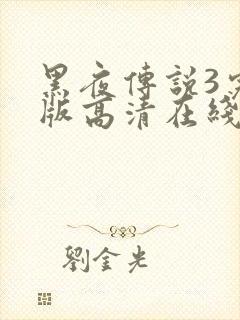 黑夜傳説3
版高清在綫
劉金光